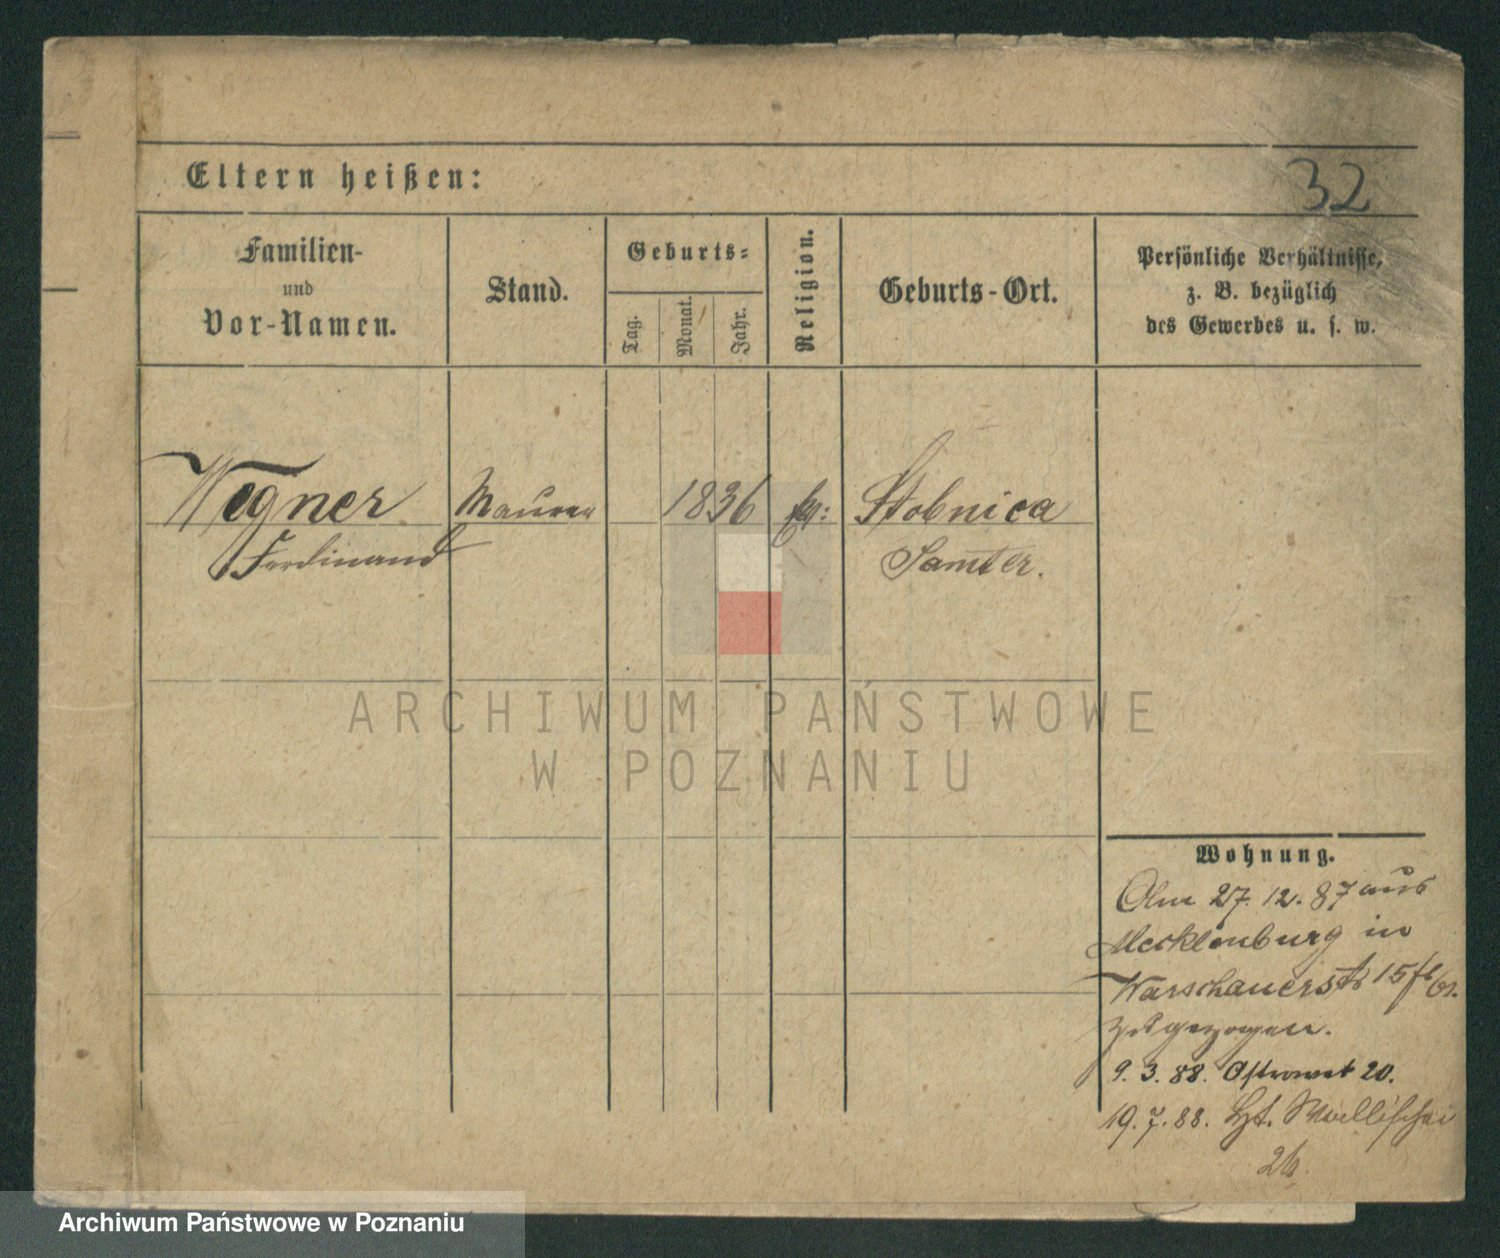 Eltern heißen:
32
Familien-
und
Vor-Namen.
Stand.
Geburts-
Tag.
Monat.
Jahr.
Religion.
Geburts-Ort.
Persönliche Verhältnisse,
z. B. bezüglich
des Gewerbes u. s. w.
Wegner
Ferdinand
Maurer
1836
Stobnica
Samter.
ARCHIWUM PAŃSTWOWE
W POZNANIU
Wohnung.
Am 27. 12. 87 aus
Mecklenburg in
Warschauerstr 15
zugezogen.
9. 3. 88. Ostrowek 20.
19. 7. 88.
26.
Archiwum Państwowe w Poznaniu